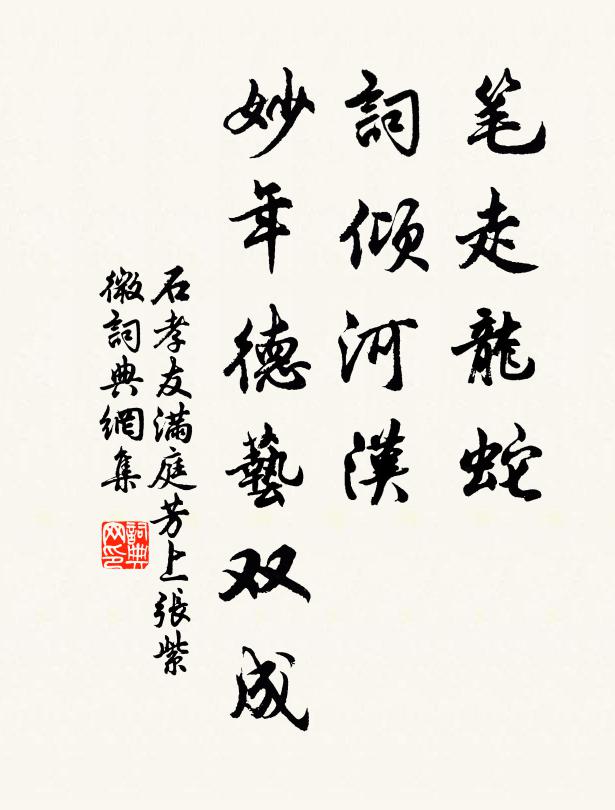 笔走龍蛇
詞傾河漢
妙年德藝双成
石孝友滿庭芳上張紫
微詞典網集
詞典网印